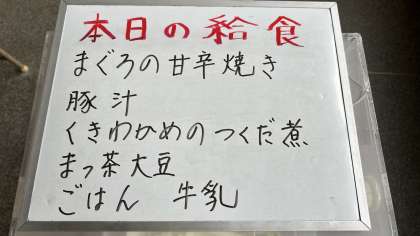 本日の給食
まぐろの甘辛焼き
豚汁
くきわかめのつくだ煮
まっ茶大豆
ごはん 牛乳